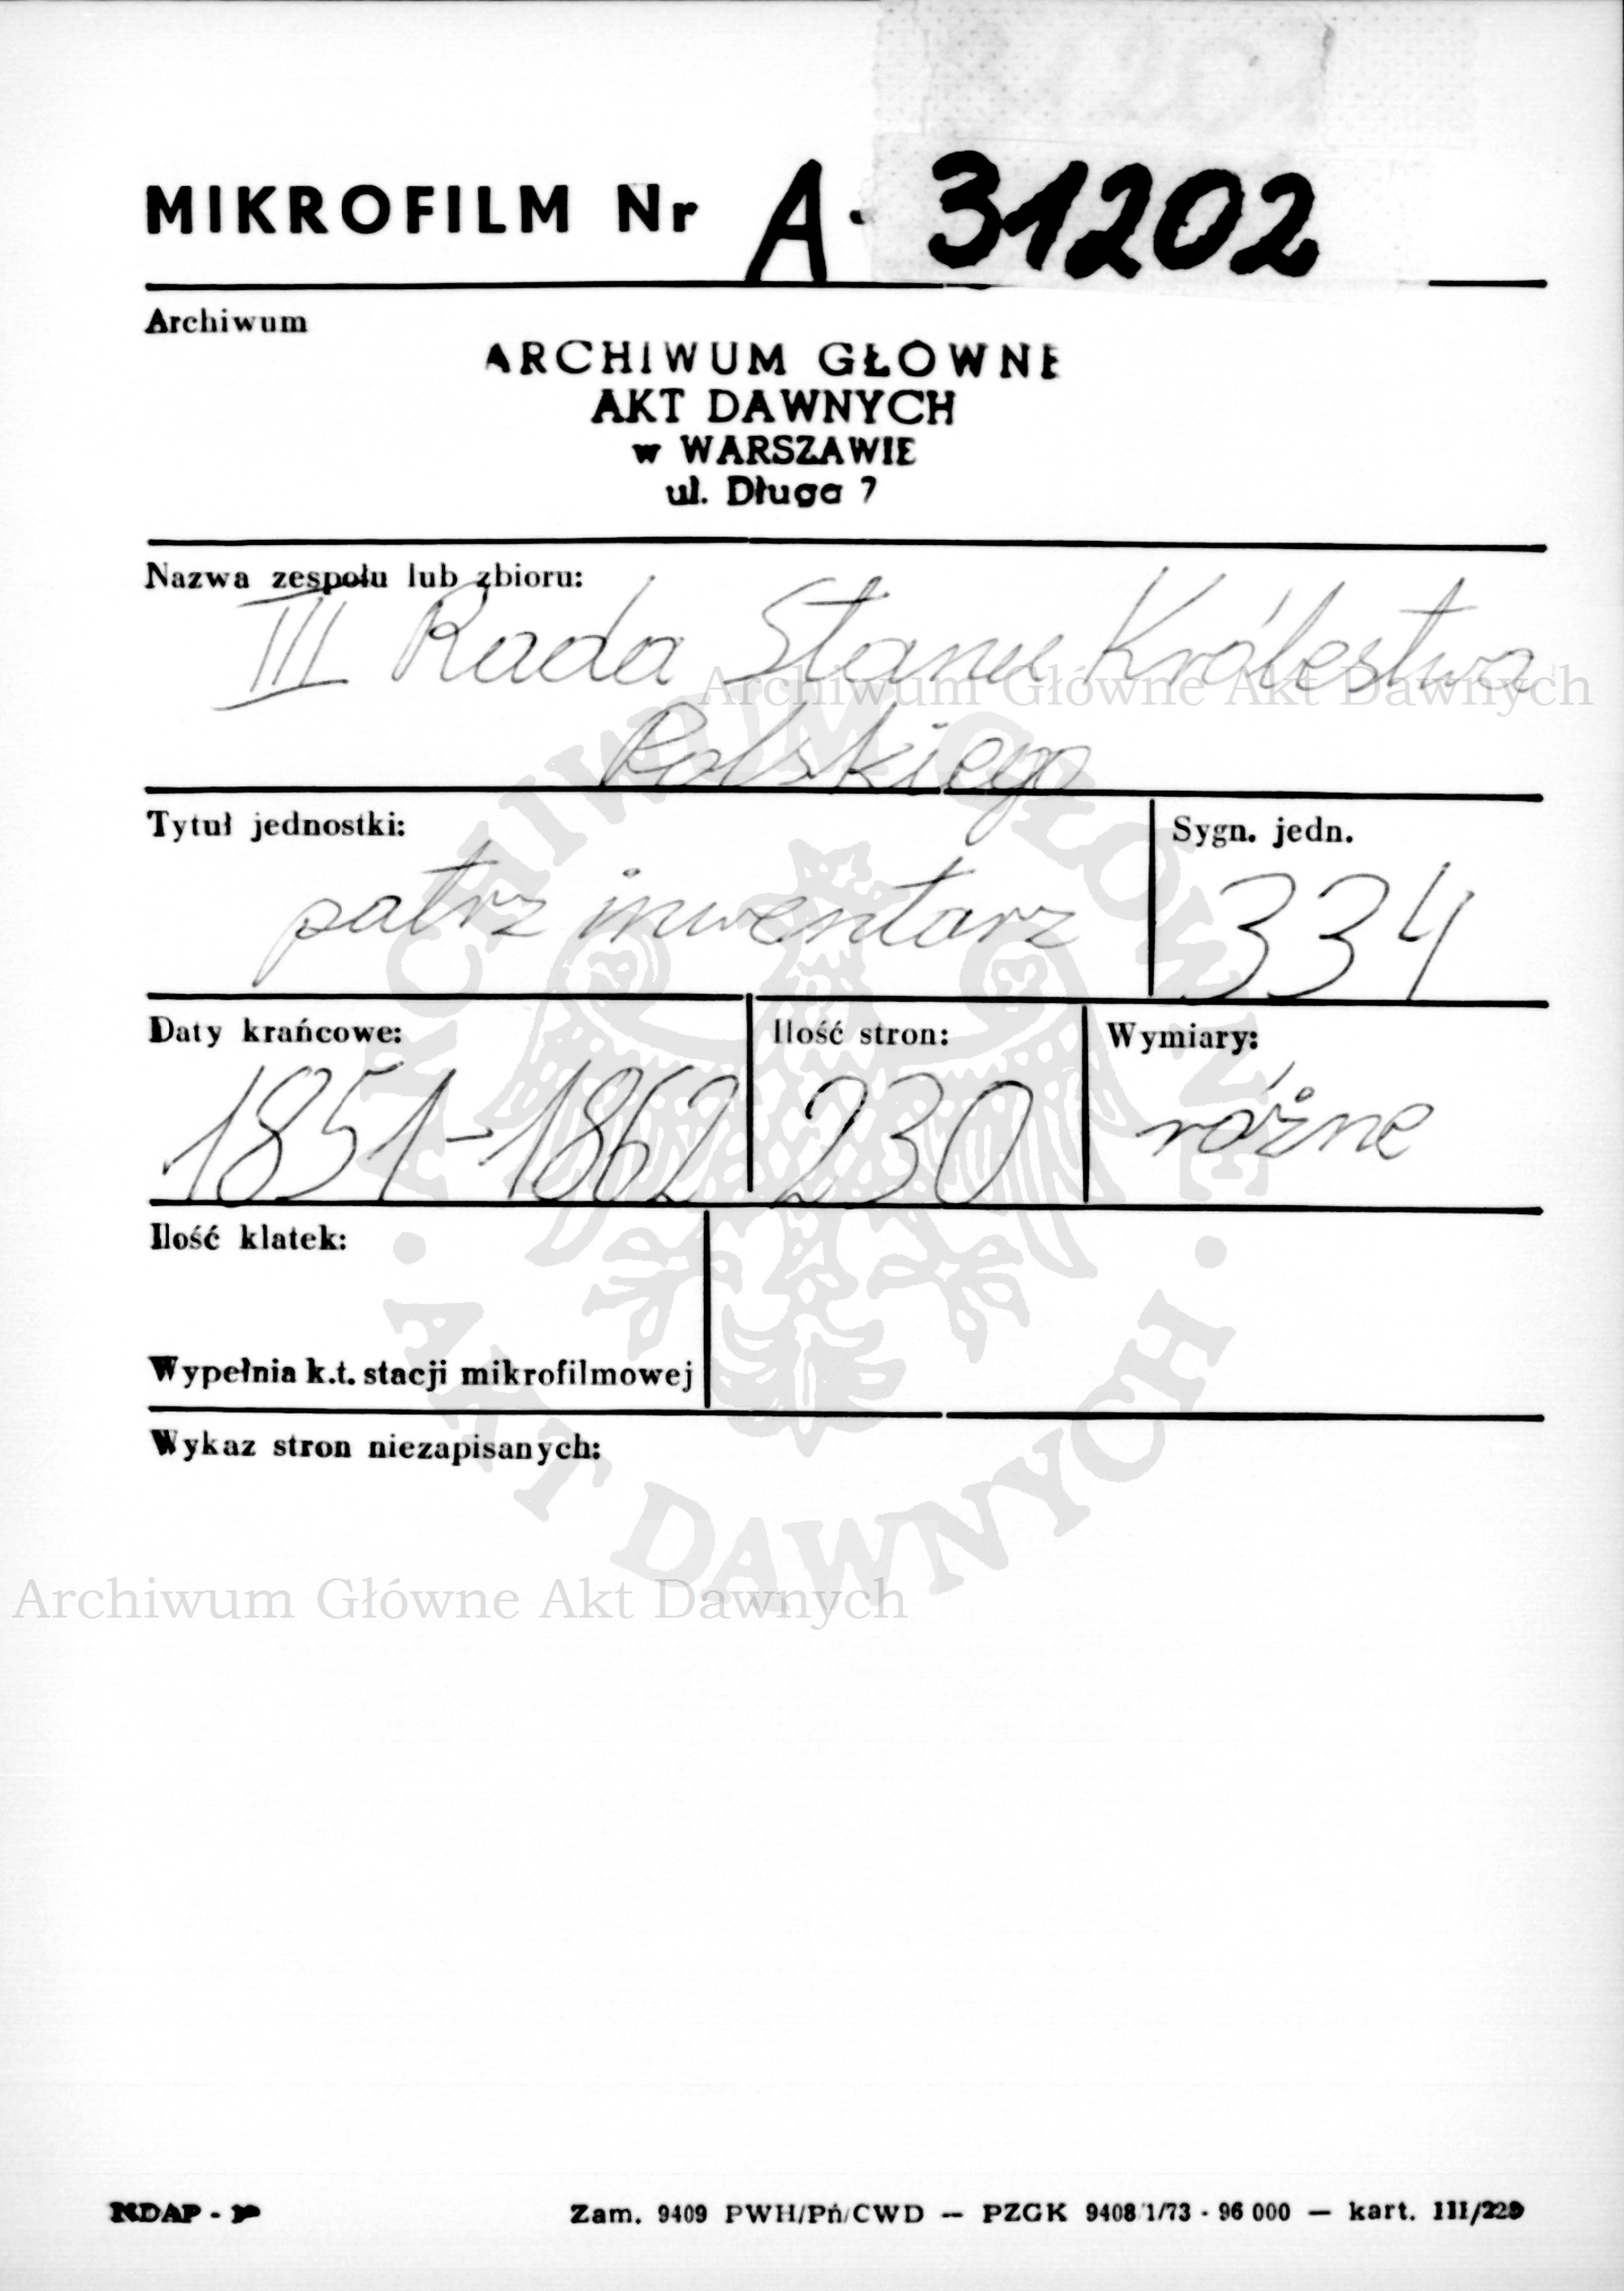 MIKROFILM Nr A- 31202
Archiwum
ARCHIWUM GŁÓWNE
AKT DAWNYCH
w WARSZAWIE
ul. Długa 7
Nazwa zespołu lub zbioru:
III Rada Stanu Królestwa
Archiwum Główne Akt Dawnych
Polskiego
Tytuł jednostki:
patrz inwentarz
Sygn. jedn.
334
Daty krańcowe:
1851-1862
Ilość stron:
230
Wymiary:
różne
Ilość klatek:
Wypełnia k.t. stacji mikrofilmowej
Wykaz stron niezapisanych:
ARCHIWUM GŁÓWNE
AKT DAWNYCH
Archiwum Główne Akt Dawnych
NDAP -
Zam. 9409 PWH/Pń/CWD — PZGK 9408 1/73 - 96 000 — kart. III/229